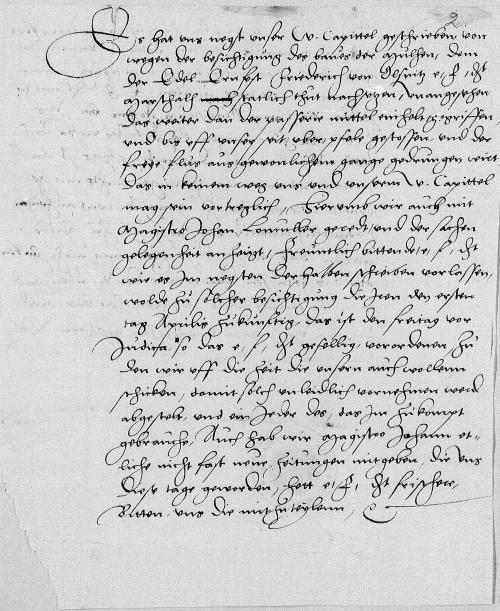 2
Es hat uns negst unser W. Capittel geschrieben, von
wegen der besichtigung des baues der Mulhen, dem
der Edel Ernvhest Friederich von e. f. gt
Marschalh statlich thut nachsetzen, unangesehen
das weiter dan der wasserie mittel gegriffen
und bis uff unser seit uber pfele gestossen, und der
freye flus aus gewonlichem gange gedrungen wirt
das in keinem weg uns und unserm W. Capittel
mag sein vortreglich, Hierumb wir auch mit
Magistro Johan geredt und der sachen
gelegenheit an freuntlich bittende, e. f. gt
wie es im negsten derhalben schreiben vorlassen,
wolde zu solcher besichtigung die den ersten
tag Aprilis zukunftig, das ist den freitag vor
Judica, so das e. f. gt gefellig, vorordenen zu
den wir uff die zeit die unsern auch wollenn
schicken, domit solch unleidlich vornehmen werd
abgestelt, und ein Jeder des, das im zukompt
gebrauche, Auch hab wir Magister Johann et-
liche nicht fast neue zeitungen mitgeben, die uns
diese tage geworden, hett e. f. gt frischere,
Bitten uns die mitzuteylenn,